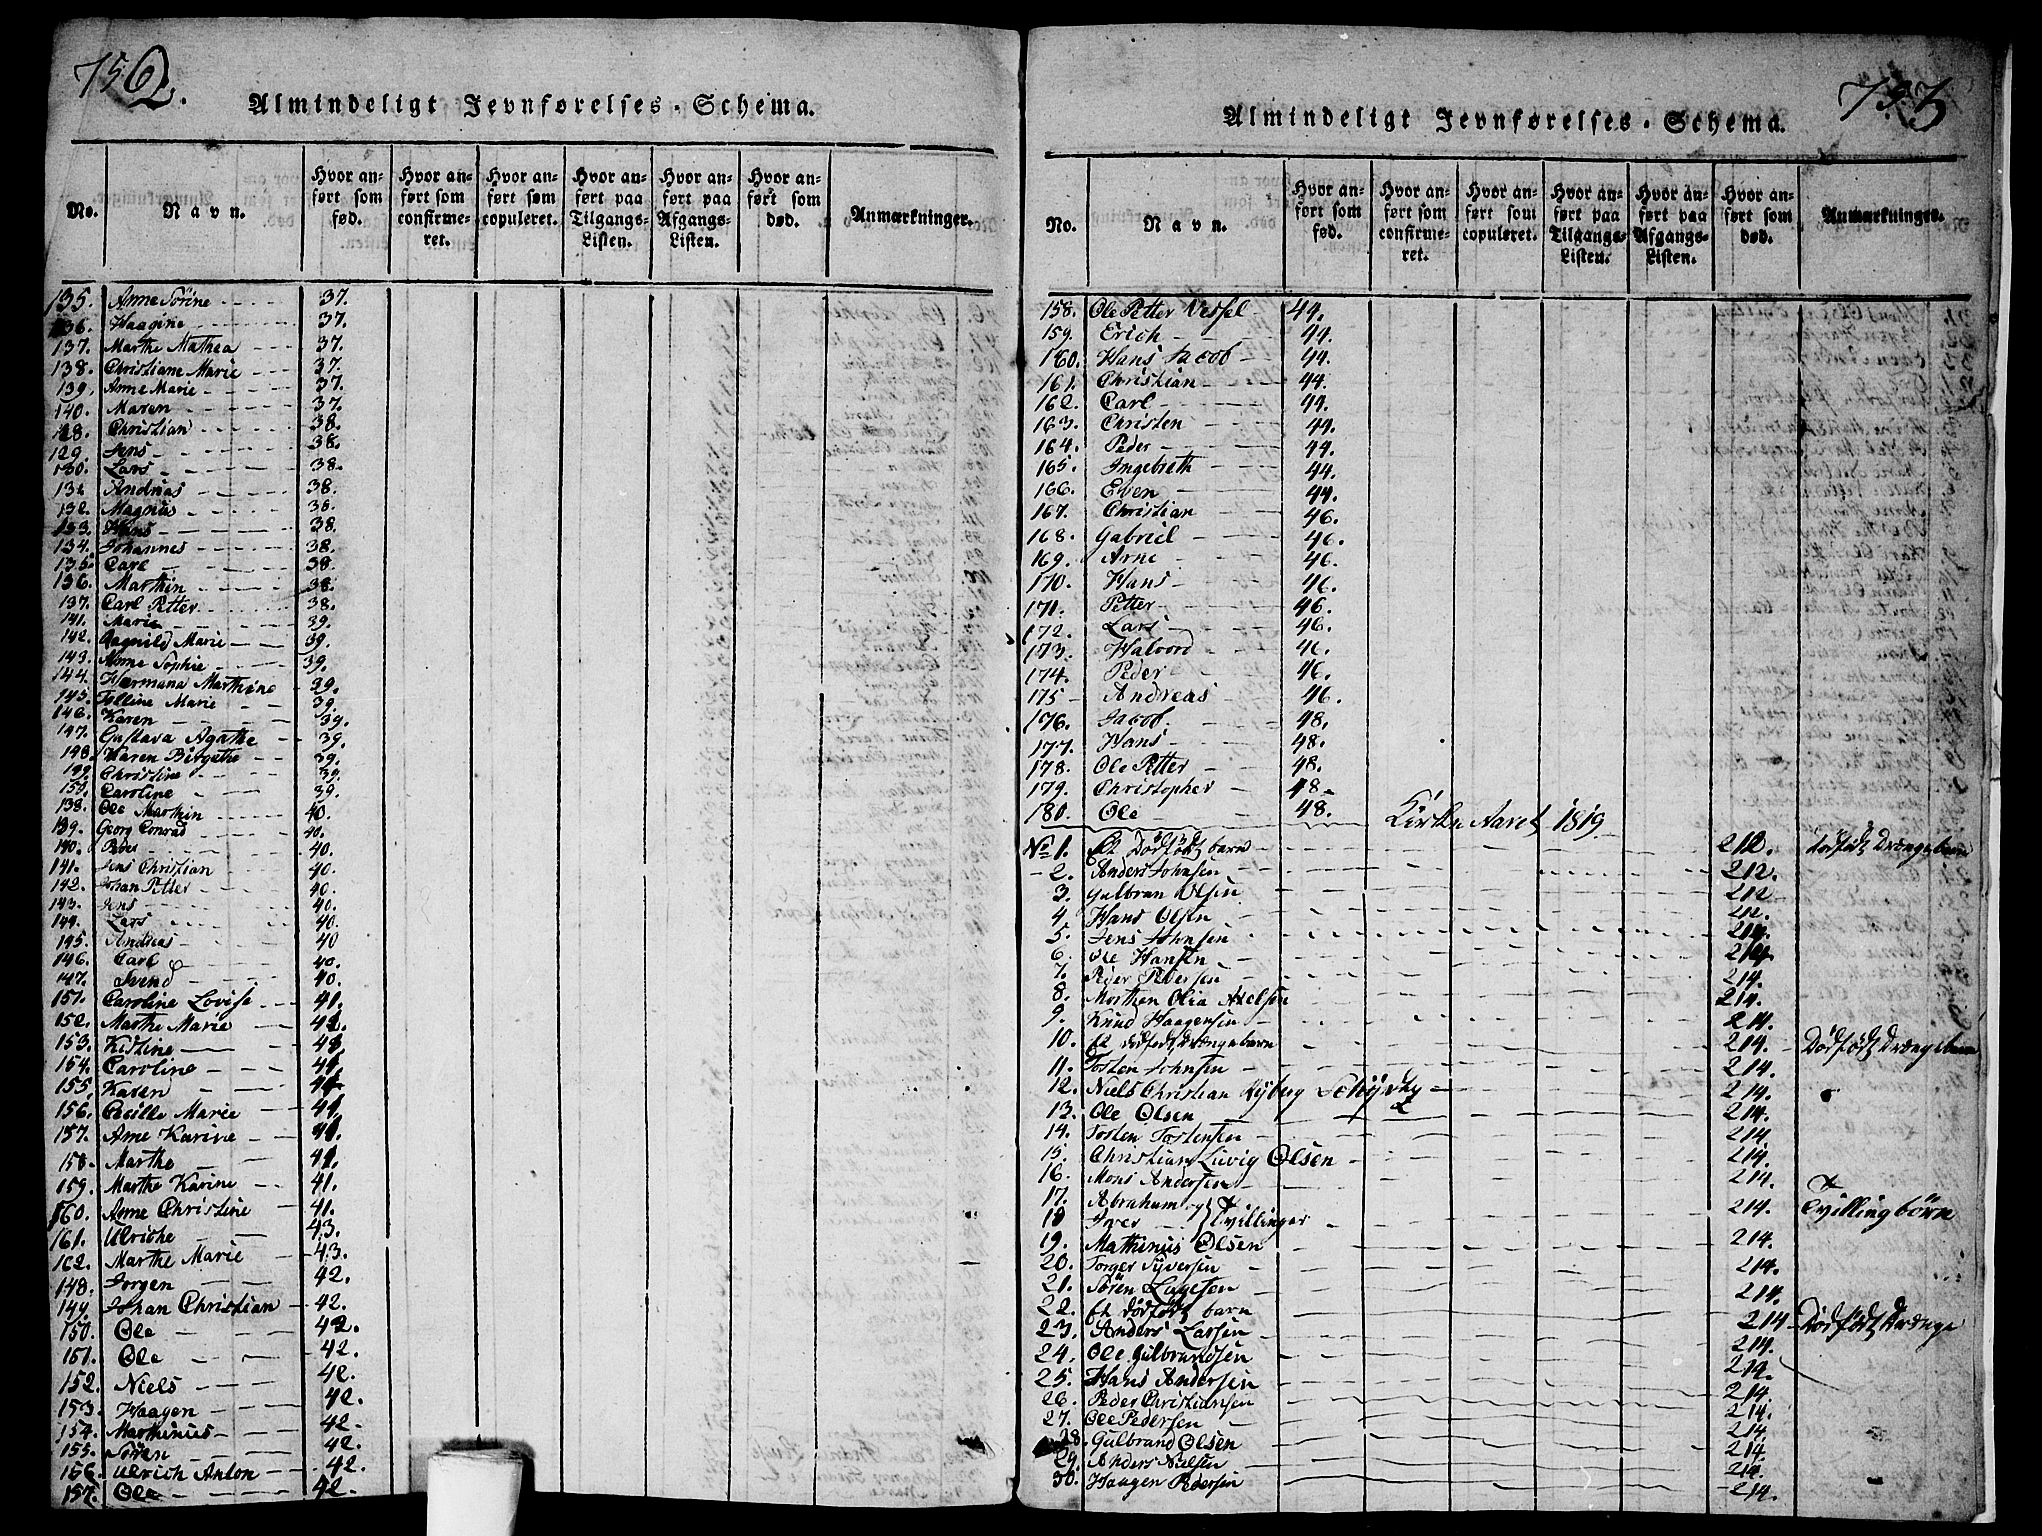 752.
Almindeligt Jevnførelses-Schema.
No.
Navn.
Hvor anført som fød.
Hvor anført som confirmeret.
Hvor anført som copuleret.
Hvor anført paa Tilgangs-Listen.
Hvor anført paa Afgangs-Listen.
Hvor anført som død.
Anmærkninger.
135. Anne Sørine 37.
136. Haagine 37.
137. Marthe Mathea 37.
138. Christiane Marie 37.
139. Anne Marie 37.
140. Maren 37.
128. Christian 38.
129. Jens 38.
130. Lars 38.
131. Andreas 38.
132. Magnus 38.
133. Hans 38.
134. Johannes 38.
135. Carl 38.
136. Marthin 38.
137. Carl Petter 38.
141. Marie 39.
142. Ragnild Marie 39.
143. Anne Sophie 39.
144. Hermana Marthine 39.
145. Marie 39.
146. Karen 39.
147. Gustava Agathe 39.
148. Karen Birgethe 39.
149. Christine 39.
150. Caroline 39.
138. Ole Marthin 40.
139. Georg Conrad 40.
140. Peder 40.
141. Jens Christian 40.
142. Johan Petter 40.
143. Jens 40.
144. Lars 40.
145. Andreas 40
146. Carl 40.
147. Svend 40.
151. Caroline Lovise 41.
152. Marthe Marie 41.
153. Kistine 41.
154. Caroline 41.
155. Karen 41.
156. Cecille Marie 41.
157. Anne Karine 41.
158. Marthe 41.
159. Marthe Karine 41.
160. Anne Christine 41.
161. Ulriche 43.
162. Marthe Marie 43.
148. Jørgen 42.
149. Johan Christian 42.
150. Ole 42.
151. Ole 42.
152. Niels 42.
153. Haagen 42.
154. Marthinus 42.
155. Søren 42.
156. Ulrich Anton 42.
157. Ole 42.
753
Almindeligt Jevnførelses-Schema.
No.
Navn.
Hvor anført som fød.
Hvor anført som confirmeret.
Hvor anført som copuleret.
Hvor anført paa Tilgangs-Listen.
Hvor anført paa Afgangs-Listen.
Hvor anført som død.
Anmærkninger.
158. Ole Petter Vessel 44.
159. Erich 44.
160. Hans Jacob 44.
161. Christian 44.
162. Carl 44.
163. Christen 44.
164. Peder 44.
165. Ingebreth 44.
166. Even 44.
167. Christian 46.
168. Gabriel 46.
169. Arne 46.
170. Hans 46.
171. Petter 46.
172. Lars 46.
173. Halvord 46.
174. Peder 46.
175 Andreas 46.
176. Jacob 48.
177. Hans 48.
178. Ole Petter 48.
179. Christopher 48.
180. Ole 48.
Kirke Aaret 1819
No 1. Et dødfødt barn 212. dødfødt Drængebarn
2. Anders Johnsen 212.
3. Gulbran Olsen 212
4. Hans Olsen 212.
5. Jens Johnsen 214.
6. Ole Hansen 214.
7. Peder Pedersen 214.
8. Morthen Olia Axelsøn 214.
9. Knud Haagensen 214.
10. Et dødfødt Drængebarn 214. Dødfødt Drængebarn
11. Tosten Johnsen 214.
12. Niels Christian Ryberg 214.
13. Ole Olsen 214.
14. Tosten Tostensen 214
15. Christian Luvig Olsen 214.
16. Mons Andersen 214.
17. Abraham og
18 Iver Tvillinger 214. Tvillingbørn
19. Mathinus Olsen 214.
20. Torger Syversen 214.
21. Søren Lagesen 214.
22. Et dødfødt barn 214 Dødfødt Drænge
23. Anders Larsen 214.
24. Ole Gulbrandsen 214.
25. Hans Andersen 214.
26. Peder Christiansen 214.
27. Ole Pedersen 214.
28. Gulbrand Olsen 214
29. Anders Nielsen 214.
30. Haagen Pedersen 214.